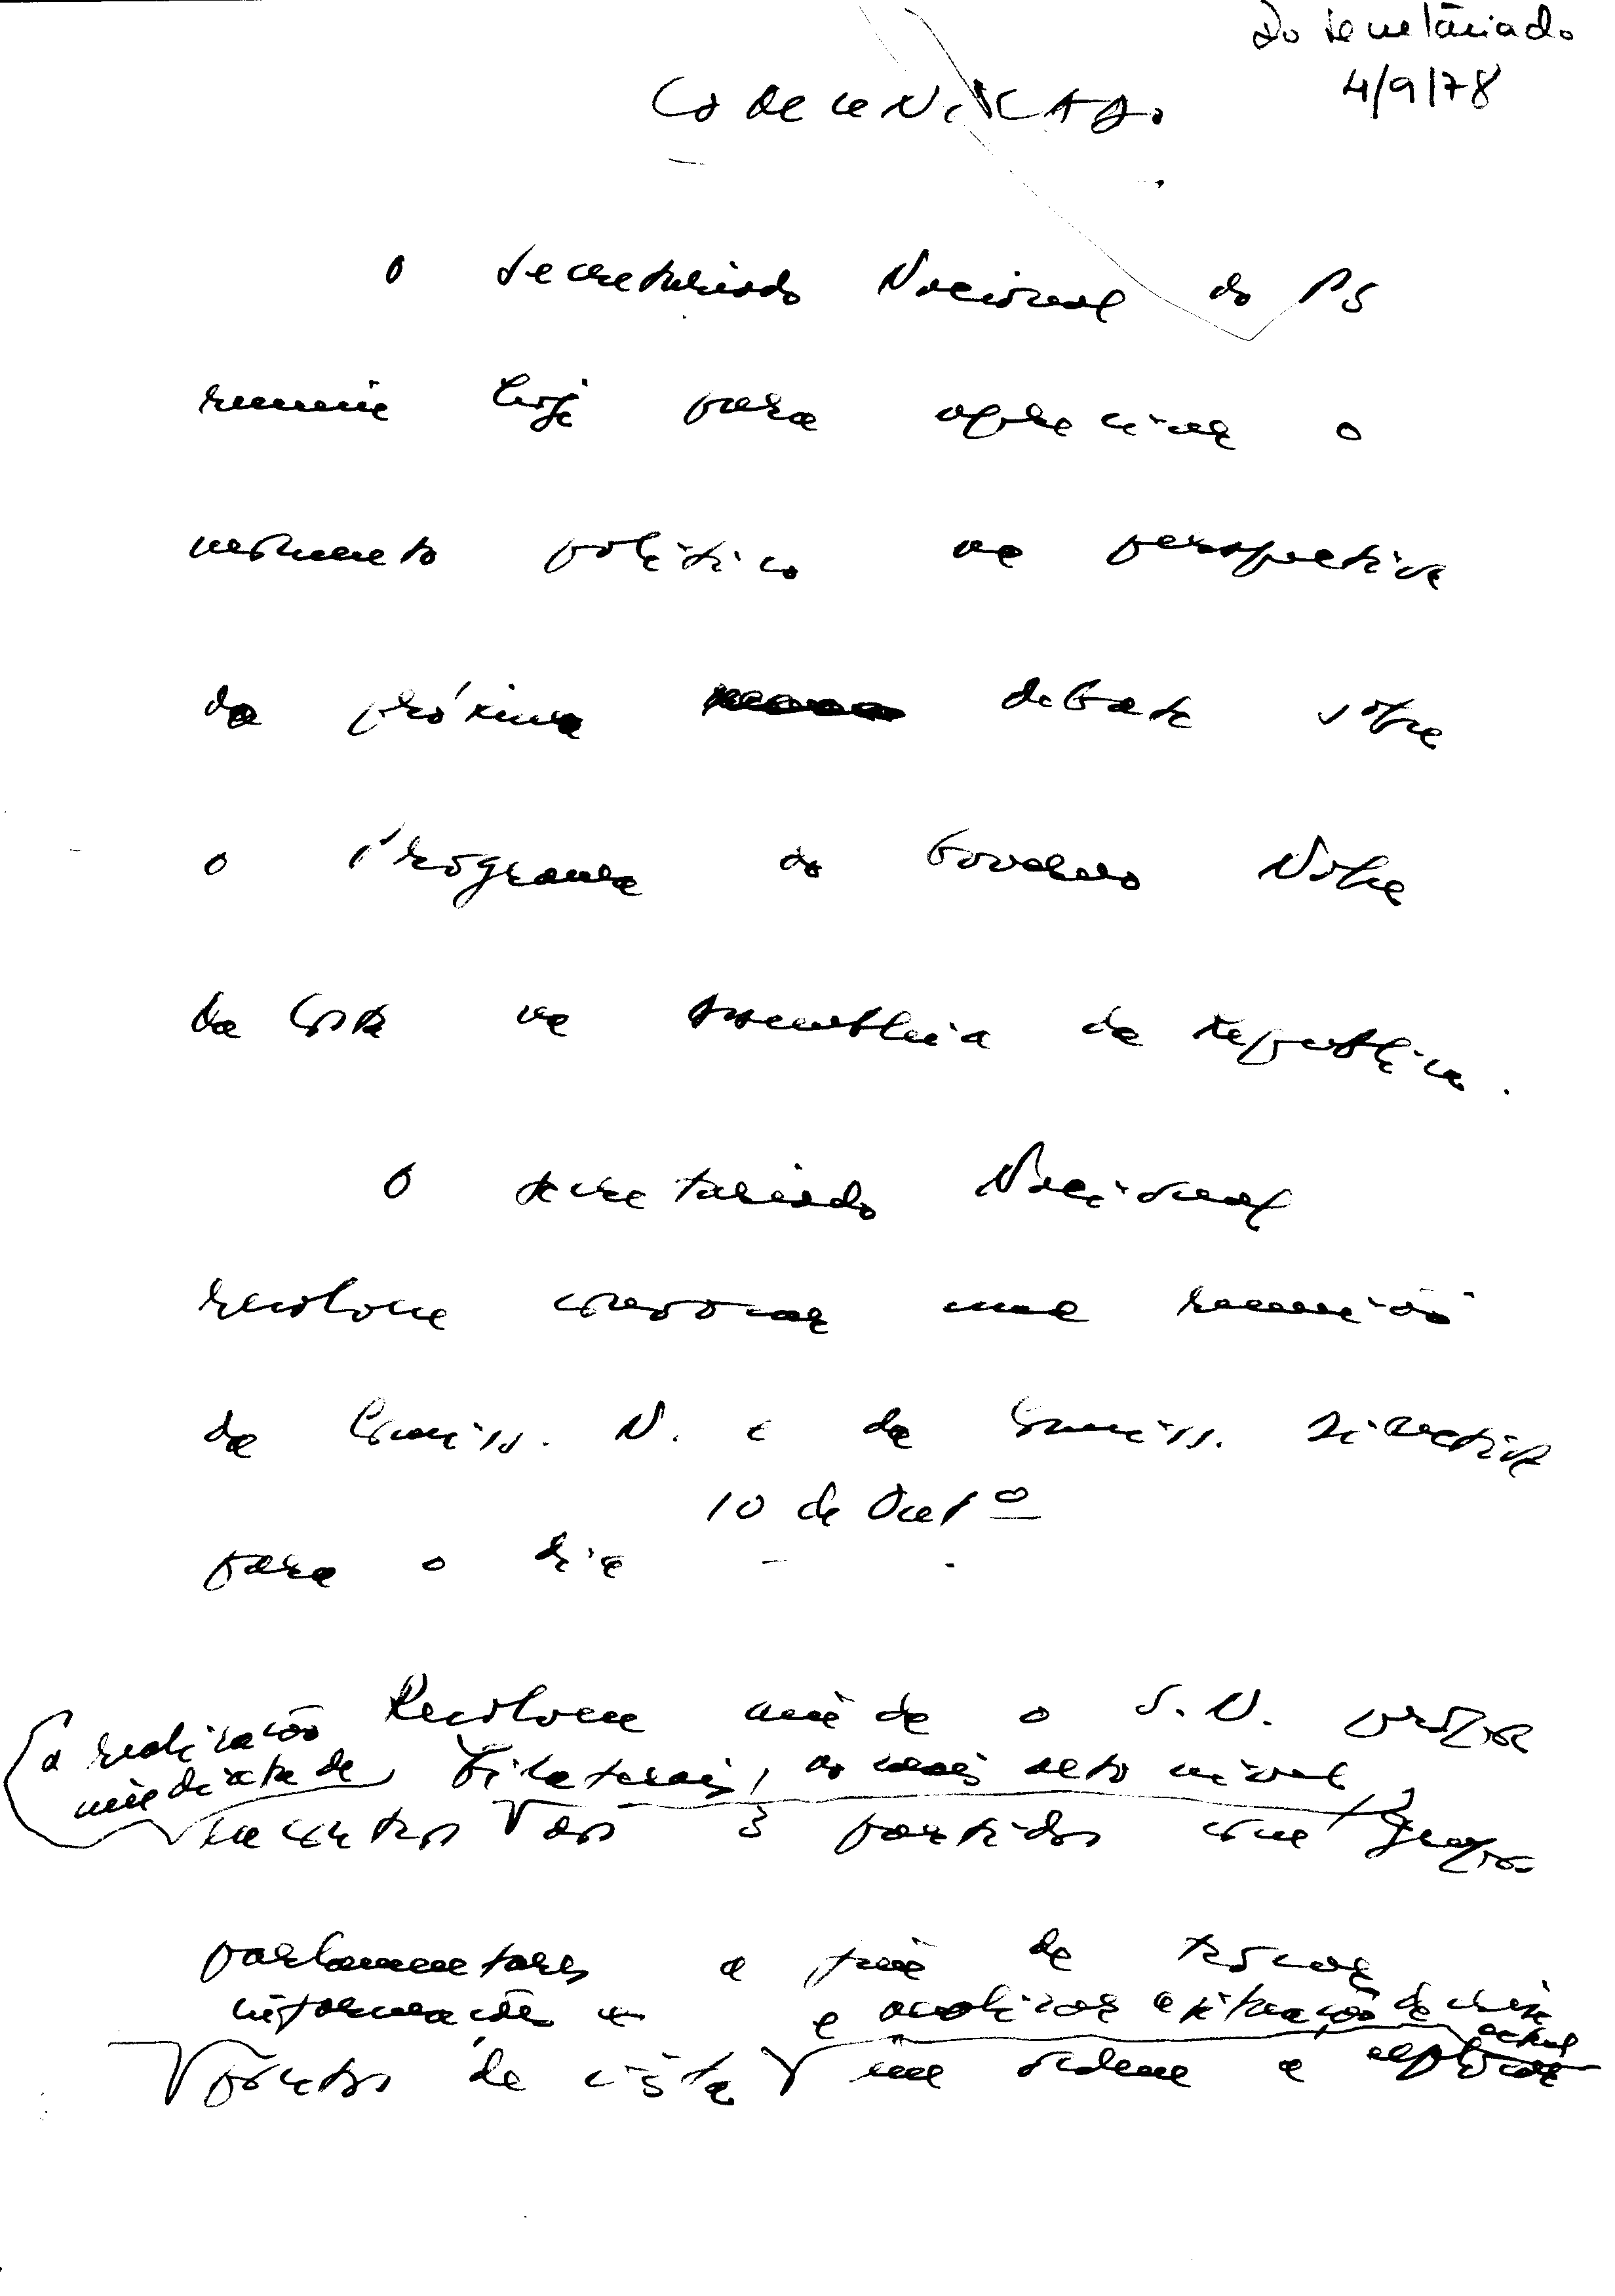 Do Secretariado
4/9/78
COMUNICADO
O Secretariado Nacional do PS
reuniu hoje para apreciar o
momento político na perspectiva
do próximo debate sobre
o Programa do Governo Nobre
da Costa na Assembleia da República.
O Secretariado Nacional
resolveu convocar uma reunião
da Comiss. N. e da Comiss. Directiva
10 de Outº
para o dia
Resolveu ainda o S.N. propor
a realização
imediata de bilaterais, ao mais alto nível,
encontros aos 3 partidos com grupos
parlamentares a fim de trocar
informações e e analizar a situação de crise
actual
pontos de vista em ordem a